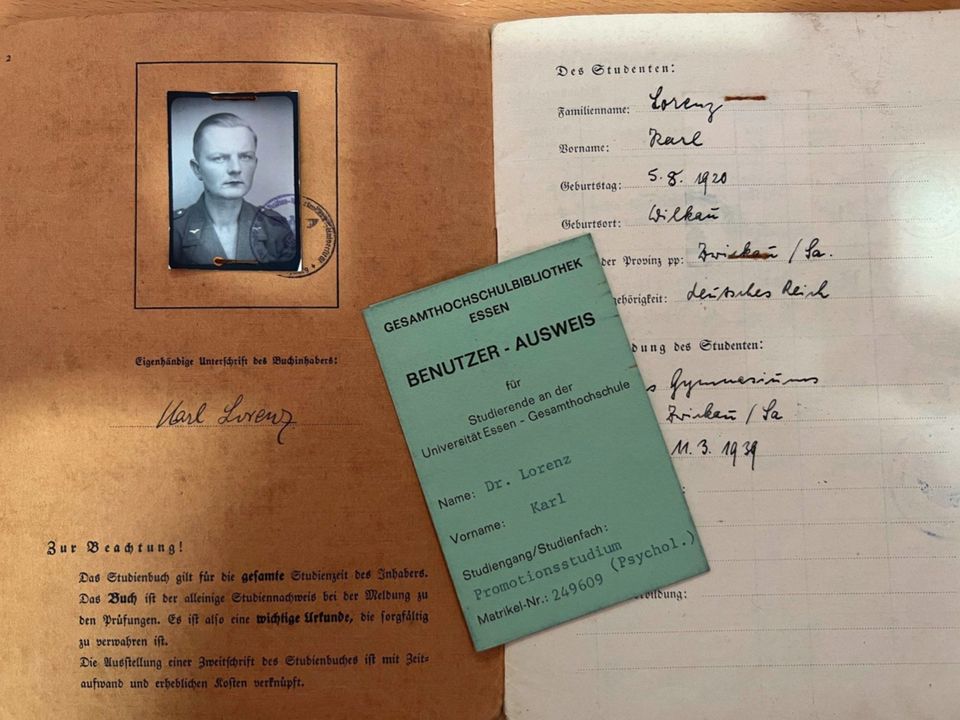 2
Eigenhändige Unterschrift des Buchinhabers:
Karl Lorenz
Zur Beachtung!
Das Studienbuch gilt für die gesamte Studienzeit des Inhabers.
Das Buch ist der alleinige Studiennachweis bei der Meldung zu
den Prüfungen. Es ist also eine wichtige Urkunde, die sorgfältig
zu verwahren ist.
Die Ausstellung einer Zweitschrift des Studienbuches ist mit Zeit-
aufwand und erheblichen Kosten verknüpft.
GESAMTHOCHSCHULBIBLIOTHEK
ESSEN
BENUTZER - AUSWEIS
für
Studierende an der
Universität Essen - Gesamthochschule
Name: Dr. Lorenz
Vorname: Karl
Studiengang/Studienfach:
Promotionsstudium
Matrikel-Nr.: 249609 (Psychol.)
Des Studenten:
Familienname: Lorenz
Vorname: Karl
Geburtstag: 5. 8. 1920
Geburtsort: Wilkau
der Provinz pp: Zwickau / Sa.
gehörigkeit: deutsches Reich
dung des Studenten:
s Gymnasiums
Zwickau / Sa
11. 3. 1939
bildung: